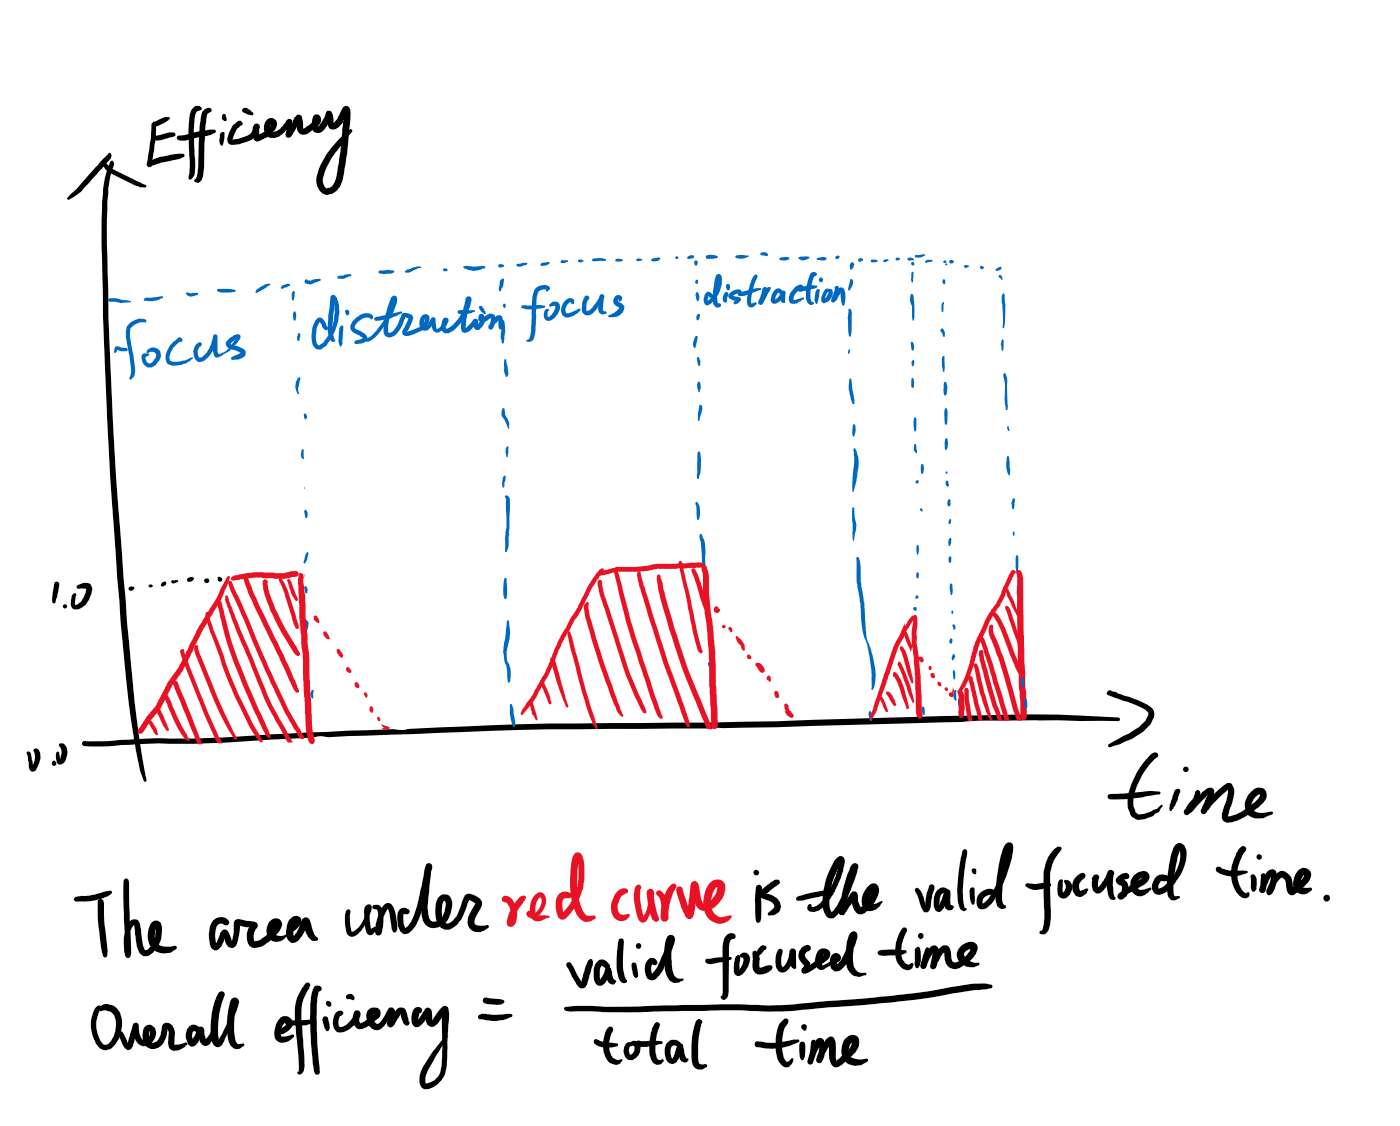 Efficiency
focus
distraction
focus
distraction
1.0
0.0
time
The area under red curve is the valid focused time.
Overall efficiency = valid focused time
total time